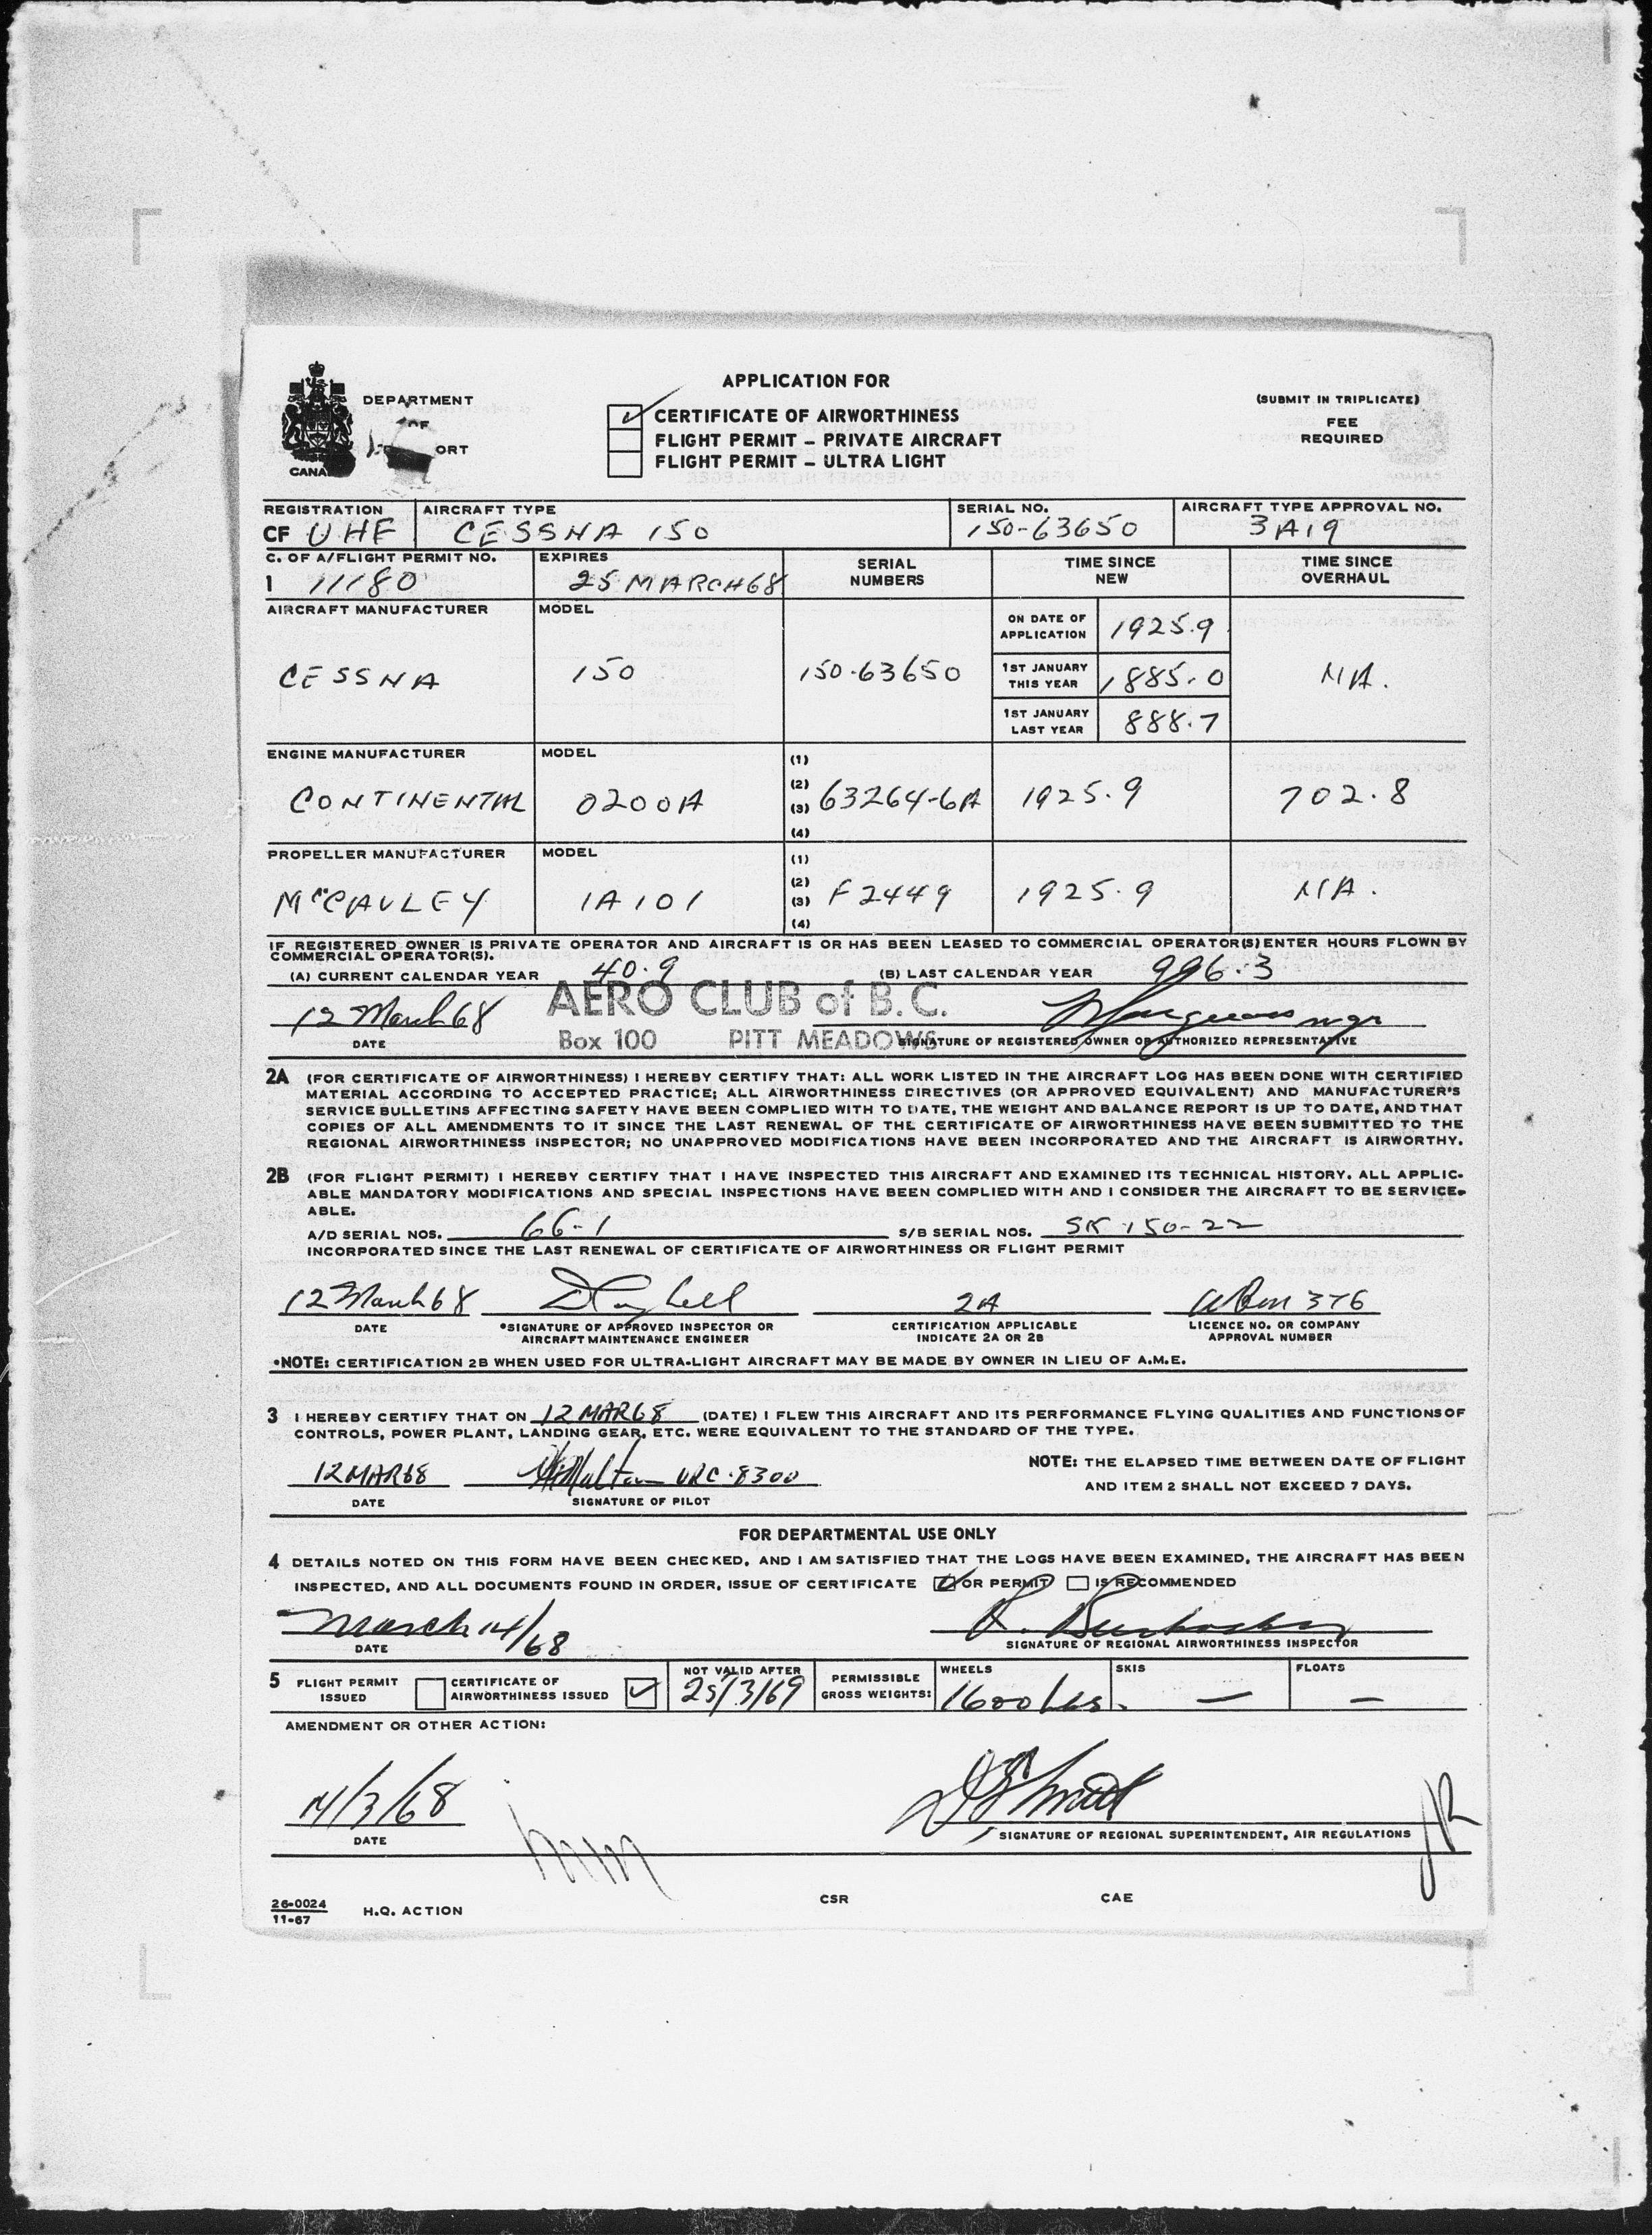 DEPARTMENT
OF
ORT
CANA
APPLICATION FOR
CERTIFICATE OF AIRWORTHINESS
FLIGHT PERMIT – PRIVATE AIRCRAFT
FLIGHT PERMIT – ULTRA LIGHT
(SUBMIT IN TRIPLICATE)
FEE
REQUIRED
REGISTRATION AIRCRAFT TYPE SERIAL NO. AIRCRAFT TYPE APPROVAL NO.
CF UHF CESSNA 150 150-63650 3A19
C. OF A/FLIGHT PERMIT NO. EXPIRES SERIAL NUMBERS TIME SINCE NEW TIME SINCE OVERHAUL
1 11180 25 MARCH 68
AIRCRAFT MANUFACTURER MODEL
CESSNA 150 150-63650 NA.
ON DATE OF APPLICATION 1925.9
1ST JANUARY THIS YEAR 1885.0
1ST JANUARY LAST YEAR 888.7
ENGINE MANUFACTURER MODEL (1)
(2)
CONTINENTAL 0200A (3) 63264-6A 1925.9 702.8
(4)
PROPELLER MANUFACTURER MODEL (1)
(2)
McCAULEY 1A101 (3) F2449 1925.9 NA.
(4)
IF REGISTERED OWNER IS PRIVATE OPERATOR AND AIRCRAFT IS OR HAS BEEN LEASED TO COMMERCIAL OPERATOR(S) ENTER HOURS FLOWN BY
COMMERCIAL OPERATOR(S).
(A) CURRENT CALENDAR YEAR 40.9 (B) LAST CALENDAR YEAR 996.3
AERO CLUB of B.C.
12 March 68 mgr
Box 100 PITT MEADOWS
DATE SIGNATURE OF REGISTERED OWNER OR AUTHORIZED REPRESENTATIVE
2A (FOR CERTIFICATE OF AIRWORTHINESS) I HEREBY CERTIFY THAT: ALL WORK LISTED IN THE AIRCRAFT LOG HAS BEEN DONE WITH CERTIFIED
MATERIAL ACCORDING TO ACCEPTED PRACTICE; ALL AIRWORTHINESS DIRECTIVES (OR APPROVED EQUIVALENT) AND MANUFACTURER'S
SERVICE BULLETINS AFFECTING SAFETY HAVE BEEN COMPLIED WITH TO DATE, THE WEIGHT AND BALANCE REPORT IS UP TO DATE, AND THAT
COPIES OF ALL AMENDMENTS TO IT SINCE THE LAST RENEWAL OF THE CERTIFICATE OF AIRWORTHINESS HAVE BEEN SUBMITTED TO THE
REGIONAL AIRWORTHINESS INSPECTOR; NO UNAPPROVED MODIFICATIONS HAVE BEEN INCORPORATED AND THE AIRCRAFT IS AIRWORTHY.
2B (FOR FLIGHT PERMIT) I HEREBY CERTIFY THAT I HAVE INSPECTED THIS AIRCRAFT AND EXAMINED ITS TECHNICAL HISTORY. ALL APPLIC-
ABLE MANDATORY MODIFICATIONS AND SPECIAL INSPECTIONS HAVE BEEN COMPLIED WITH AND I CONSIDER THE AIRCRAFT TO BE SERVICE-
ABLE.
A/D SERIAL NOS. 66-1 S/B SERIAL NOS. SK-150-22
INCORPORATED SINCE THE LAST RENEWAL OF CERTIFICATE OF AIRWORTHINESS OR FLIGHT PERMIT
12 March 68 2A 376
DATE *SIGNATURE OF APPROVED INSPECTOR OR AIRCRAFT MAINTENANCE ENGINEER CERTIFICATION APPLICABLE INDICATE 2A OR 2B LICENCE NO. OR COMPANY APPROVAL NUMBER
*NOTE: CERTIFICATION 2B WHEN USED FOR ULTRA-LIGHT AIRCRAFT MAY BE MADE BY OWNER IN LIEU OF A.M.E.
3 I HEREBY CERTIFY THAT ON 12 MAR 68 (DATE) I FLEW THIS AIRCRAFT AND ITS PERFORMANCE FLYING QUALITIES AND FUNCTIONS OF
CONTROLS, POWER PLANT, LANDING GEAR, ETC. WERE EQUIVALENT TO THE STANDARD OF THE TYPE.
12 MAR 68 VRC-8300
DATE SIGNATURE OF PILOT
NOTE: THE ELAPSED TIME BETWEEN DATE OF FLIGHT
AND ITEM 2 SHALL NOT EXCEED 7 DAYS.
FOR DEPARTMENTAL USE ONLY
4 DETAILS NOTED ON THIS FORM HAVE BEEN CHECKED, AND I AM SATISFIED THAT THE LOGS HAVE BEEN EXAMINED, THE AIRCRAFT HAS BEEN
INSPECTED, AND ALL DOCUMENTS FOUND IN ORDER, ISSUE OF CERTIFICATE OR PERMIT IS RECOMMENDED
March 14/68
DATE SIGNATURE OF REGIONAL AIRWORTHINESS INSPECTOR
5 FLIGHT PERMIT ISSUED CERTIFICATE OF AIRWORTHINESS ISSUED NOT VALID AFTER 25/3/69 PERMISSIBLE GROSS WEIGHTS: WHEELS 1600 Lbs. SKIS — FLOATS —
AMENDMENT OR OTHER ACTION:
14/3/68
DATE SIGNATURE OF REGIONAL SUPERINTENDENT, AIR REGULATIONS
26-0024
11-67
H.Q. ACTION CSR CAE